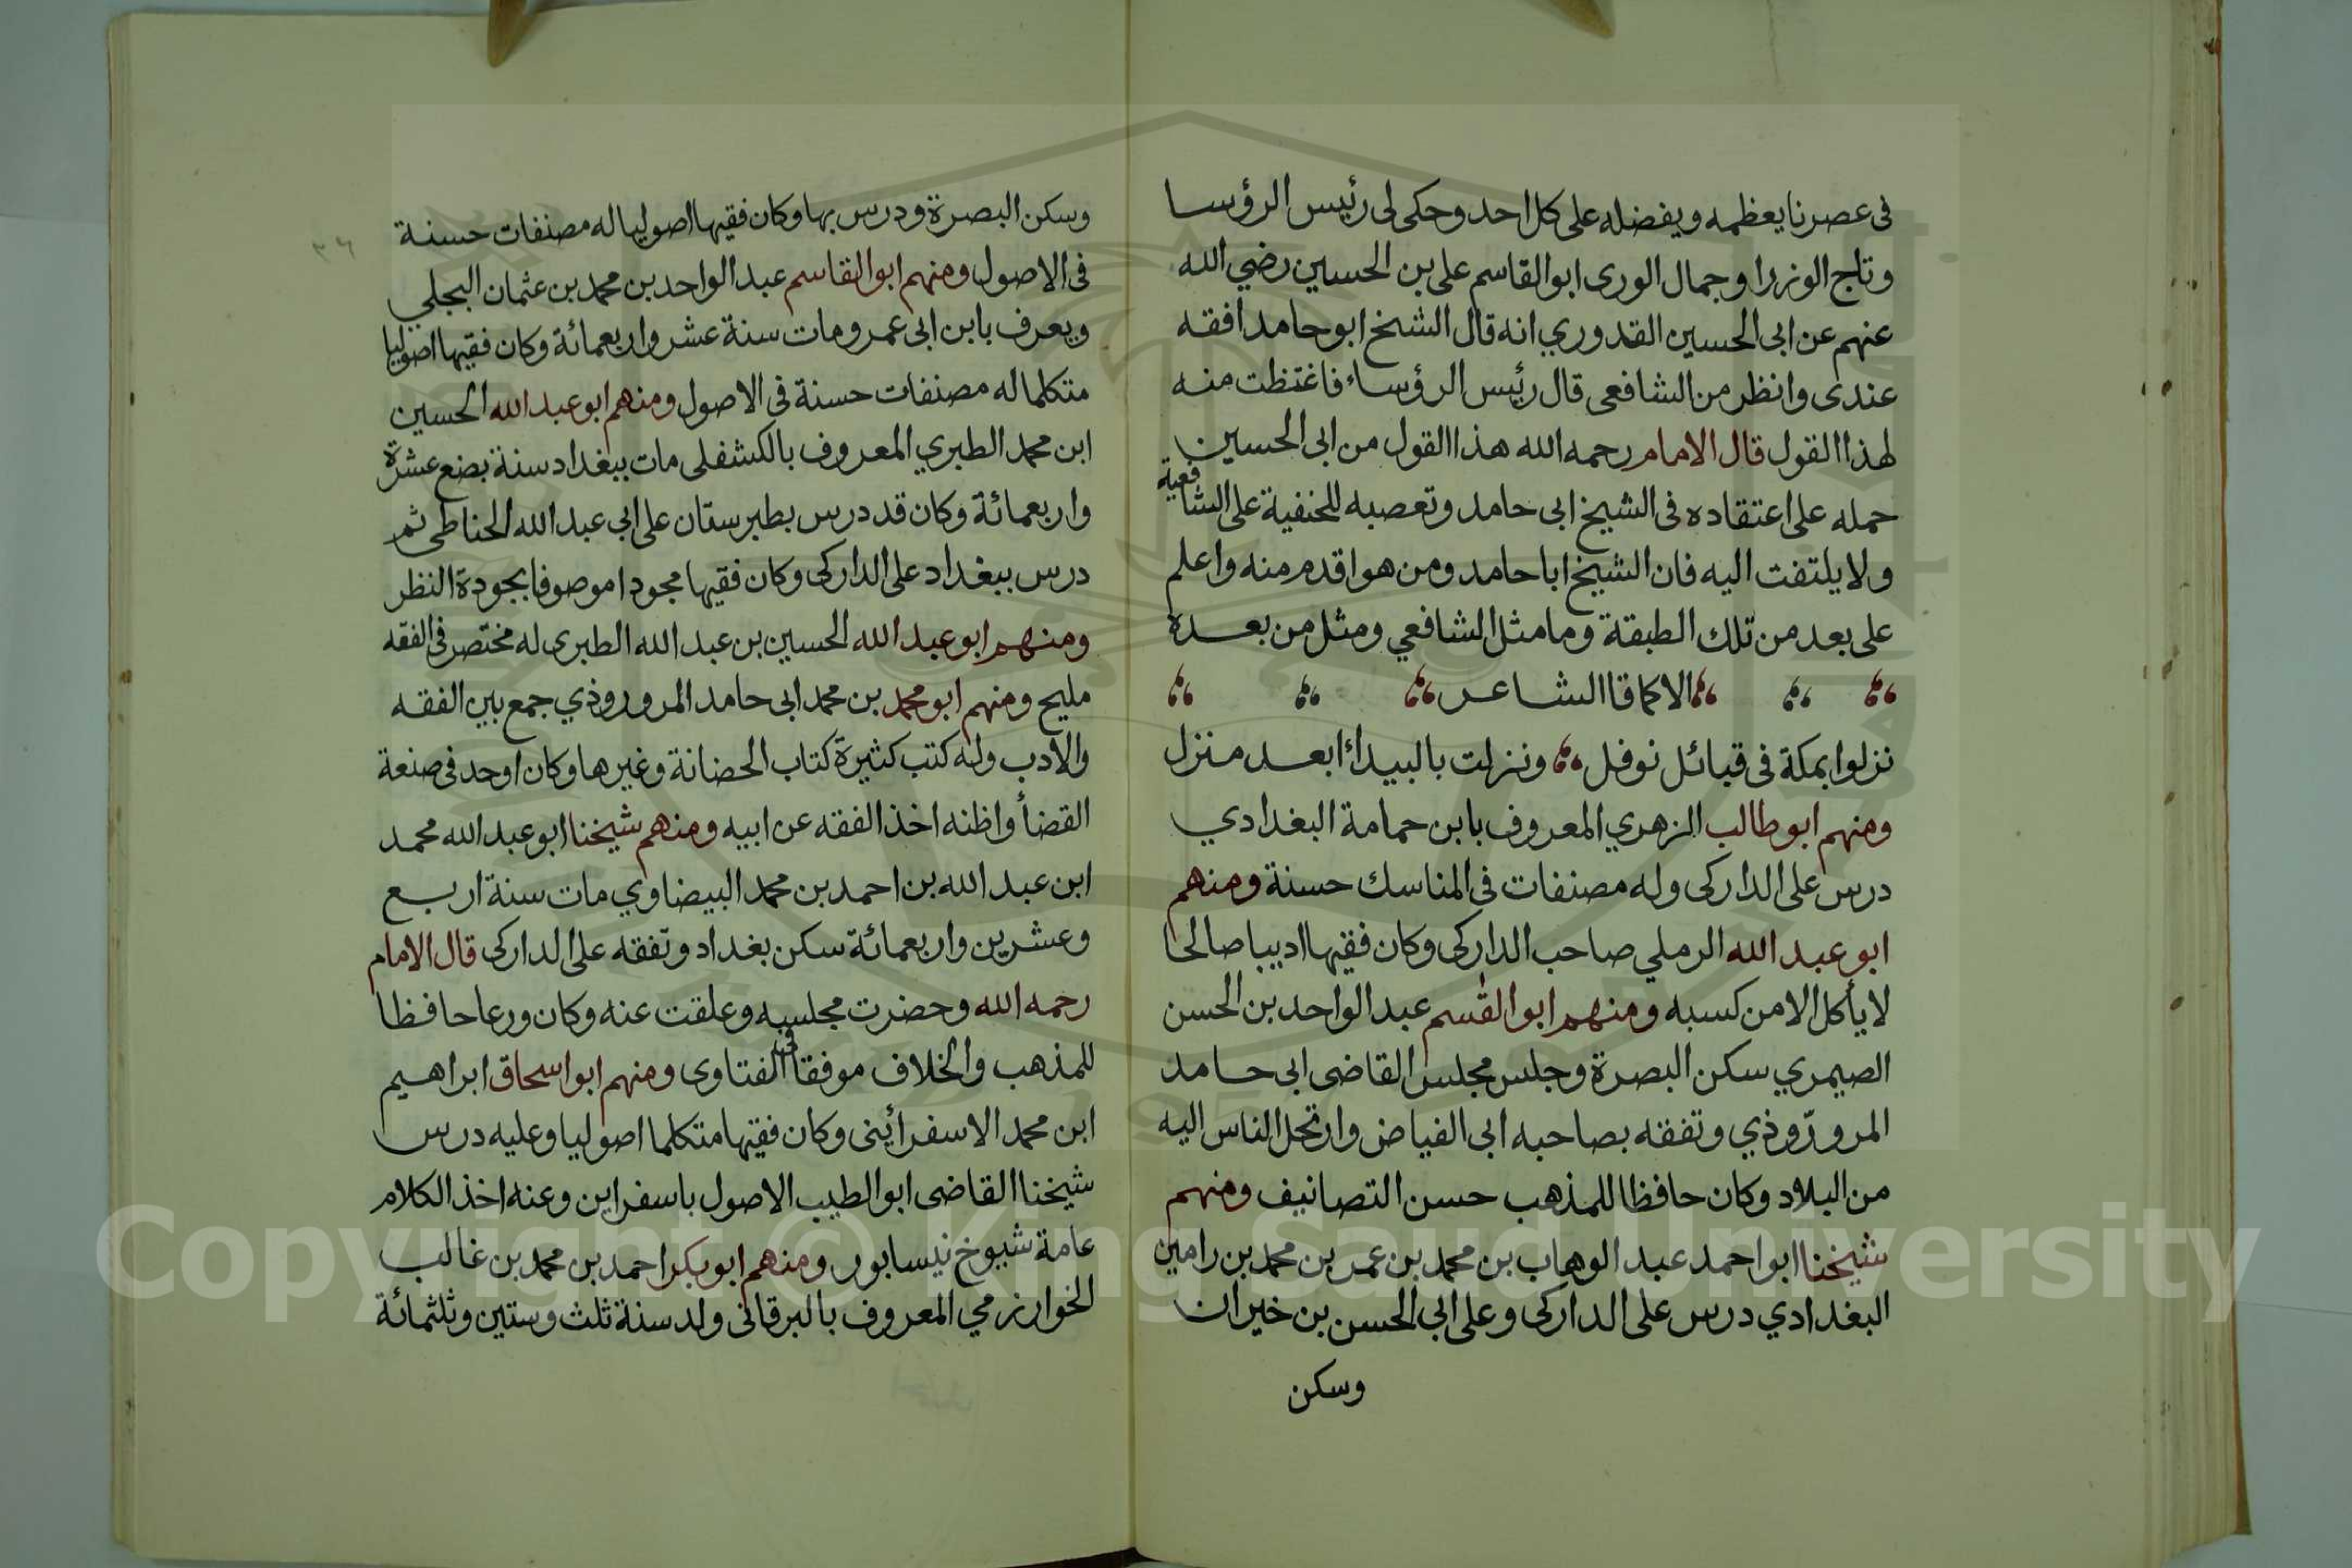 فى عصرنا يعظمه ويفضله على كل احد وحكى لى رئيس الرؤسا
وتاج الوزرا وجمال الورى ابو القاسم على بن الحسين رضي الله
عنهم عن ابى الحسين القدوري انه قال الشيخ ابو حامد افقه
عندى وانظر من الشافعى قال رئيس الرؤساء فاغتظت منه
لهذا القول قال الامام رحمه الله هذا القول من ابى الحسين
حمله على اعتقاده فى الشيخ ابى حامد وتعصبه للحنفية على الشافعية
ولا يلتفت اليه فان الشيخ ابا حامد ومن هو اقدم منه واعلم
على بعد من تلك الطبقة وما مثل الشافعي ومثل من بعده
الا كما قا الشاعر
نزلوا بمكة فى قبائل نوفل ونزلت بالبيداء ابعد منزل
ومنهم ابو طالب الزهري المعروف بابن حمامة البغدادي
درس على الداركى وله مصنفات فى المناسك حسنة ومنهم
ابو عبد الله الرملي صاحب الداركى وكان فقيها اديبا صالحا
لا يأكل الا من كسبه ومنهم ابو القسم عبد الواحد بن الحسن
الصيمري سكن البصرة وجلس مجلس القاضى ابى حامد
المروروذي وتفقه بصاحبه ابى الفياض وارتحل الناس اليه
من البلاد وكان حافظا للمذهب حسن التصانيف ومنهم
شيخنا ابو احمد عبد الوهاب بن محمد بن عمر بن محمد بن رامين
البغدادي درس على الداركى وعلى ابي الحسن بن خيران
وسكن
وسكن البصرة ودرس بها وكان فقيها اصوليا له مصنفات حسنة
فى الاصول ومنهم ابو القاسم عبد الواحد بن محمد بن عثمان البجلي
ويعرف بابن ابى عمر ومات سنة عشر واربعمائة وكان فقيها اصوليا
متكلما له مصنفات حسنة فى الاصول ومنهم ابو عبد الله الحسين
ابن محمد الطبري المعروف بالكشفلى مات ببغداد سنة بضع عشرة
واربعمائة وكان قد درس بطبرستان على ابي عبد الله الحناطى ثم
درس ببغداد على الداركى وكان فقيها مجودا موصوفا بجودة النظر
ومنهم ابو عبد الله الحسين بن عبد الله الطبرى له مختصر فى الفقه
مليح ومنهم ابو محمد بن محمد ابى حامد المروروذي جمع بين الفقه
والادب وله كتب كثيرة كتاب الحضانة وغيرها وكان اوحد فى صنعة
القضأ واظنه اخذ الفقه عن ابيه ومنهم شيخنا ابو عبد الله محمد
ابن عبد الله بن احمد بن محمد البيضاوي مات سنة اربع
وعشرين واربعمائة سكن بغداد وتفقه على الداركى قال الامام
رحمه الله وحضرت مجلسه وعلقت عنه وكان ورعا حافظا
للمذهب والخلاف موفقا فى الفتاوى ومنهم ابو اسحاق ابراهيم
ابن محمد الاسفرأينى وكان فقيها متكلما اصوليا وعليه درس
شيخنا القاضى ابو الطيب الاصول باسفراين وعنه اخذ الكلام
عامة شيوخ نيسابور ومنهم ابو بكر احمد بن محمد بن غالب
الخوارزمي المعروف بالبرقانى ولد سنة ثلث وستين وثلثمائة
٣٦
Copyright © King Saud University
1957